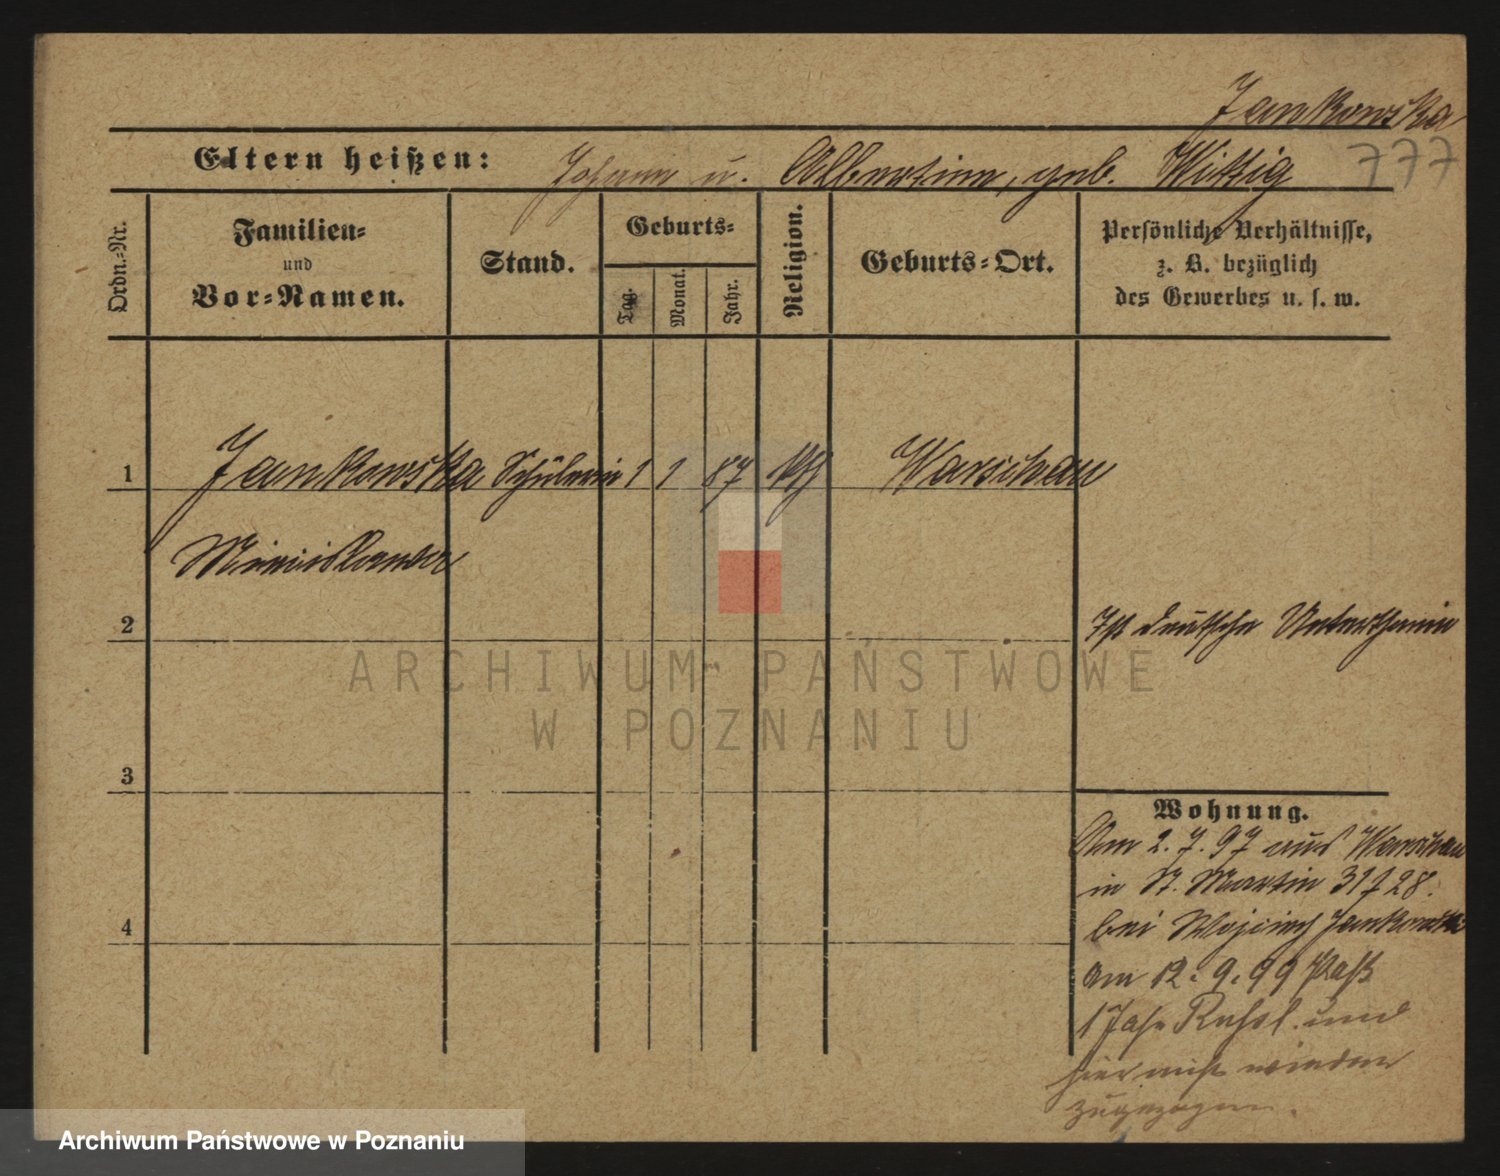 Jankowska
Eltern heißen: Johann u. Albertine, geb. Wittig 777
Ordn.-Nr.
Familien-
und
Vor-Namen.
Stand.
Geburts-
Tag.
Monat.
Jahr.
Religion.
Geburts-Ort.
Persönliche Verhältnisse,
z. B. bezüglich
des Gewerbes u. s. w.
1 Jankowska Schülerin 1 1 87 kth Warschau
Miecislawa
2 Ist deutsche Unterthanin
3
Wohnung.
Am 2.7.97 aus Warschau
in St. Martin 31 f 28.
bei Wojciech Jankowski
4
am 12.9.99 Paß
1 Jahr Rußl. und
hier nicht wieder
zugezogen.
ARCHIWUM PAŃSTWOWE
W POZNANIU
Archiwum Państwowe w Poznaniu